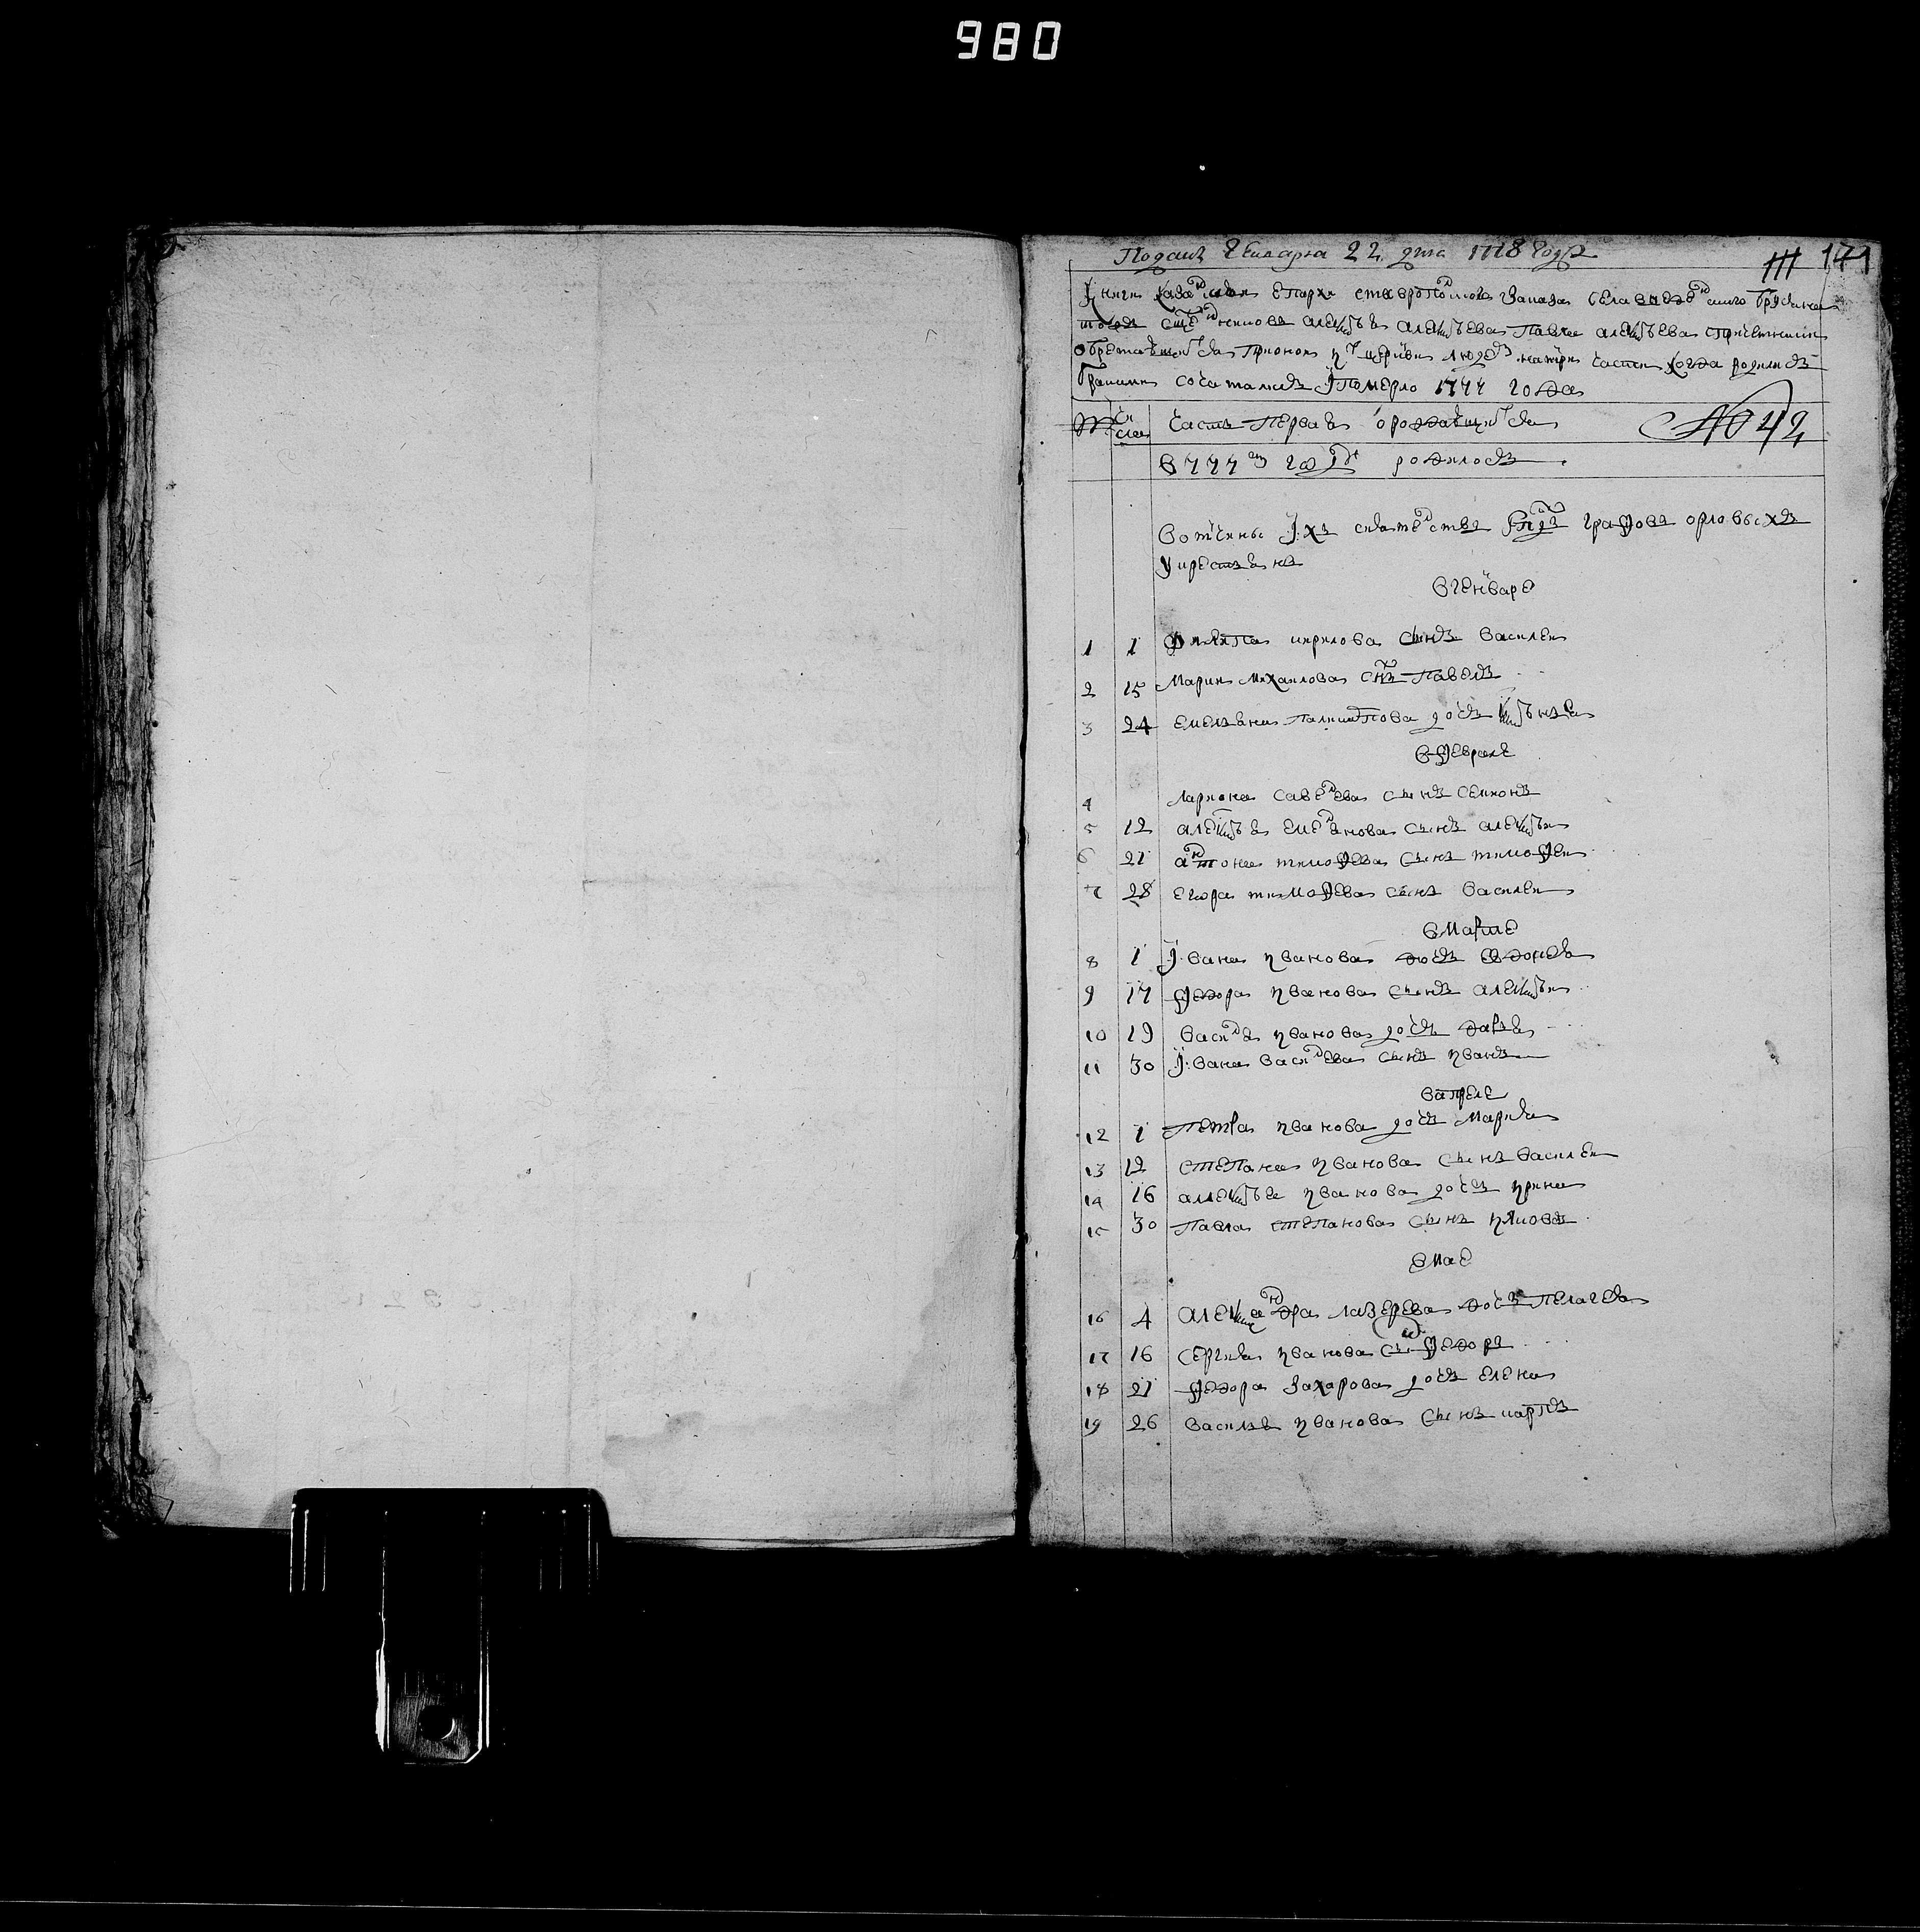 980
Подана Генваря 22 дня 1778 году
111 171
Книги казанския епархи ставропольского заказа села введенского брусяна
тожъ священниковъ алексѣя алексѣева павла алексѣева с причетники
обретающихся при оной церкви людехъ на три части когда родились
браками сочетались и померло 1777 года
№ числа Часть Первая о рождающихся
№ 42
В 777м годѣ родилось
Вотчины ихъ сиятельствъ графовъ орловыхъ
у крестьянъ
В генваре
1 1 Филипа кирилова сынъ Василеи
2 15 Марки Михаилова снъ Павелъ
3 24 Емельяна дочь
В Феврале
4 лариона Савельева сынъ Семионъ
5 12 алексѣя емельянова сынъ алексѣи
6 21 антона тимофева сынъ тимофеи
7 28 егора тимофева сынъ Василеи
В Марте
8 1 Ивана иванова дочь Евдокея
9 17 Федора иванова сынъ алексѣи
10 19 Василья иванова дочь дарья
11 30 Ивана Васильева сынъ иванъ
В апреле
12 1 Петра иванова дочь Мария
13 12 Степана иванова сынъ Василеи
14 16 алексѣя иванова дочь ирина
15 30 Павла степанова сынъ ияковъ
В Мае
16 4 Александра лазерева дочь Пелагея
17 16 Сергия иванова снъ Федоръ
18 21 Федора Захарова дочь елена
19 26 Василья иванова сынъ карпъ